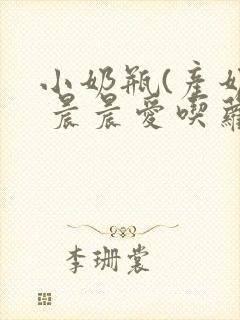 小奶瓶(産奶
晨晨愛喫蘿
李珊裳